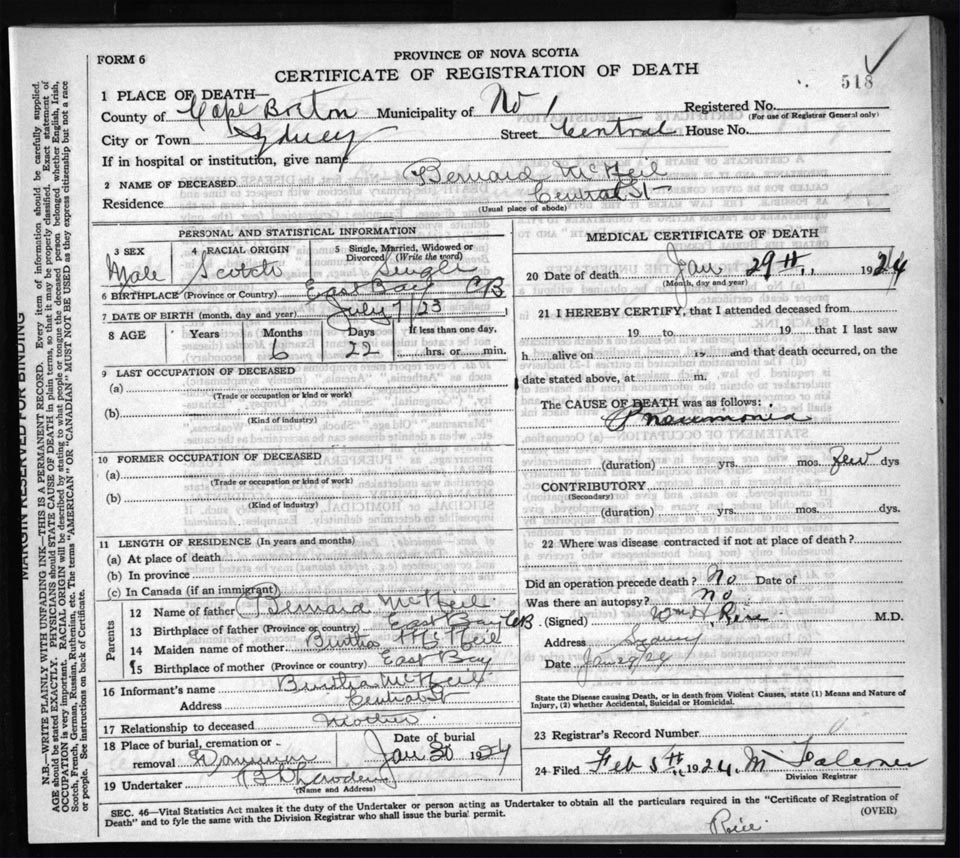 PROVINCE OF NOVA SCOTIA
FORM 6
CERTIFICATE OF REGISTRATION OF DEATH
518
1 PLACE OF DEATH—
County of Cape Breton Municipality of No 1 Registered No. (For use of Registrar General only)
City or Town Sydney Street Central House No.
If in hospital or institution, give name
2 NAME OF DECEASED Bernard McNeil
Residence Central St
(Usual place of abode)
PERSONAL AND STATISTICAL INFORMATION
3 SEX 4 RACIAL ORIGIN 5 Single, Married, Widowed or Divorced (Write the word)
Male Scotch Single
6 BIRTHPLACE (Province or Country) East Bay CB
7 DATE OF BIRTH (month, day and year) July 7/23
8 AGE Years Months Days If less than one day,
6 22 hrs. or min.
9 LAST OCCUPATION OF DECEASED
(a)
(Trade or occupation or kind of work)
(b)
(Kind of industry)
10 FORMER OCCUPATION OF DECEASED
(a)
(Trade or occupation or kind of work)
(b)
(Kind of industry)
11 LENGTH OF RESIDENCE (In years and months)
(a) At place of death
(b) In province
(c) In Canada (if an immigrant)
Parents
12 Name of father Bernard McNeil
13 Birthplace of father (Province or country) East Bay CB
14 Maiden name of mother McNeil
15 Birthplace of mother (Province or country) East Bay
16 Informant's name McNeil
Address Central St
17 Relationship to deceased Mother
18 Place of burial, cremation or removal Date of burial Jan 30 1924
19 Undertaker
(Name and Address)
MEDICAL CERTIFICATE OF DEATH
20 Date of death Jan 29th 1924
(Month, day and year)
21 I HEREBY CERTIFY, that I attended deceased from
19 to 19 that I last saw
h alive on 19 and that death occurred, on the
date stated above, at m.
The CAUSE OF DEATH was as follows:
Pneumonia
(duration) yrs. mos. few dys
CONTRIBUTORY
(Secondary)
(duration) yrs. mos. dys.
22 Where was disease contracted if not at place of death?
Did an operation precede death? No Date of
Was there an autopsy? no
(Signed) M.D.
Address Sydney
Date Jan 29/24
State the Disease causing Death, or in death from Violent Causes, state (1) Means and Nature of
Injury, (2) whether Accidental, Suicidal or Homicidal.
23 Registrar's Record Number
24 Filed Feb 5th 1924. M Falconer
Division Registrar
SEC. 46—Vital Statistics Act makes it the duty of the Undertaker or person acting as Undertaker to obtain all the particulars required in the "Certificate of Registration of
Death" and to fyle the same with the Division Registrar who shall issue the burial permit.
(OVER)
MARGIN RESERVED FOR BINDING
N.B.—WRITE PLAINLY WITH UNFADING INK—THIS IS A PERMANENT RECORD. Every item of information should be carefully supplied.
AGE should be stated EXACTLY. PHYSICIANS should STATE CAUSE OF DEATH in plain terms, so that it may be properly classified. Exact statement of
OCCUPATION is very important. RACIAL ORIGIN will be described by stating to what people or tongue the deceased person belonged whether English, Irish,
Scotch, French, German, Russian, Ruthenian, etc. The terms "AMERICAN" OR "CANADIAN" MUST NOT BE USED as they express citizenship but not a race
or people. See instructions on back of Certificate.